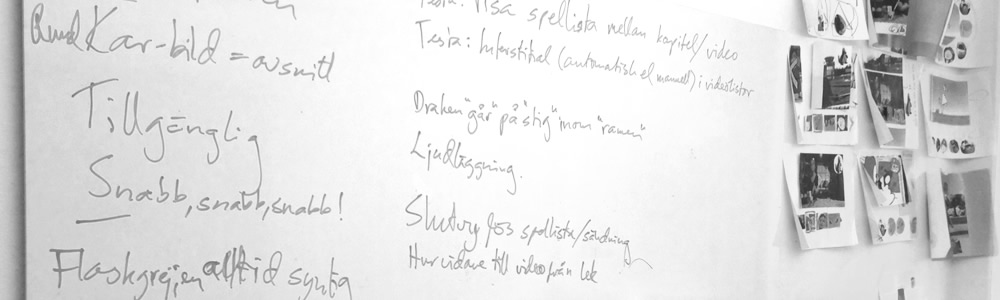 Rund Kar-bild = avsnitt
Tillgänglig
Snabb, snabb, snabb!
Flashgrejen alltid synlig
Testa: Visa spellista mellan kapitel/video
Testa: Interstitial (automatisk el manuell) i videolistor
Draken "går" på "stig" inom "ramen"
Ljudläggning.
Slutvy för spellista/sändning
Hur vidare till video från lek